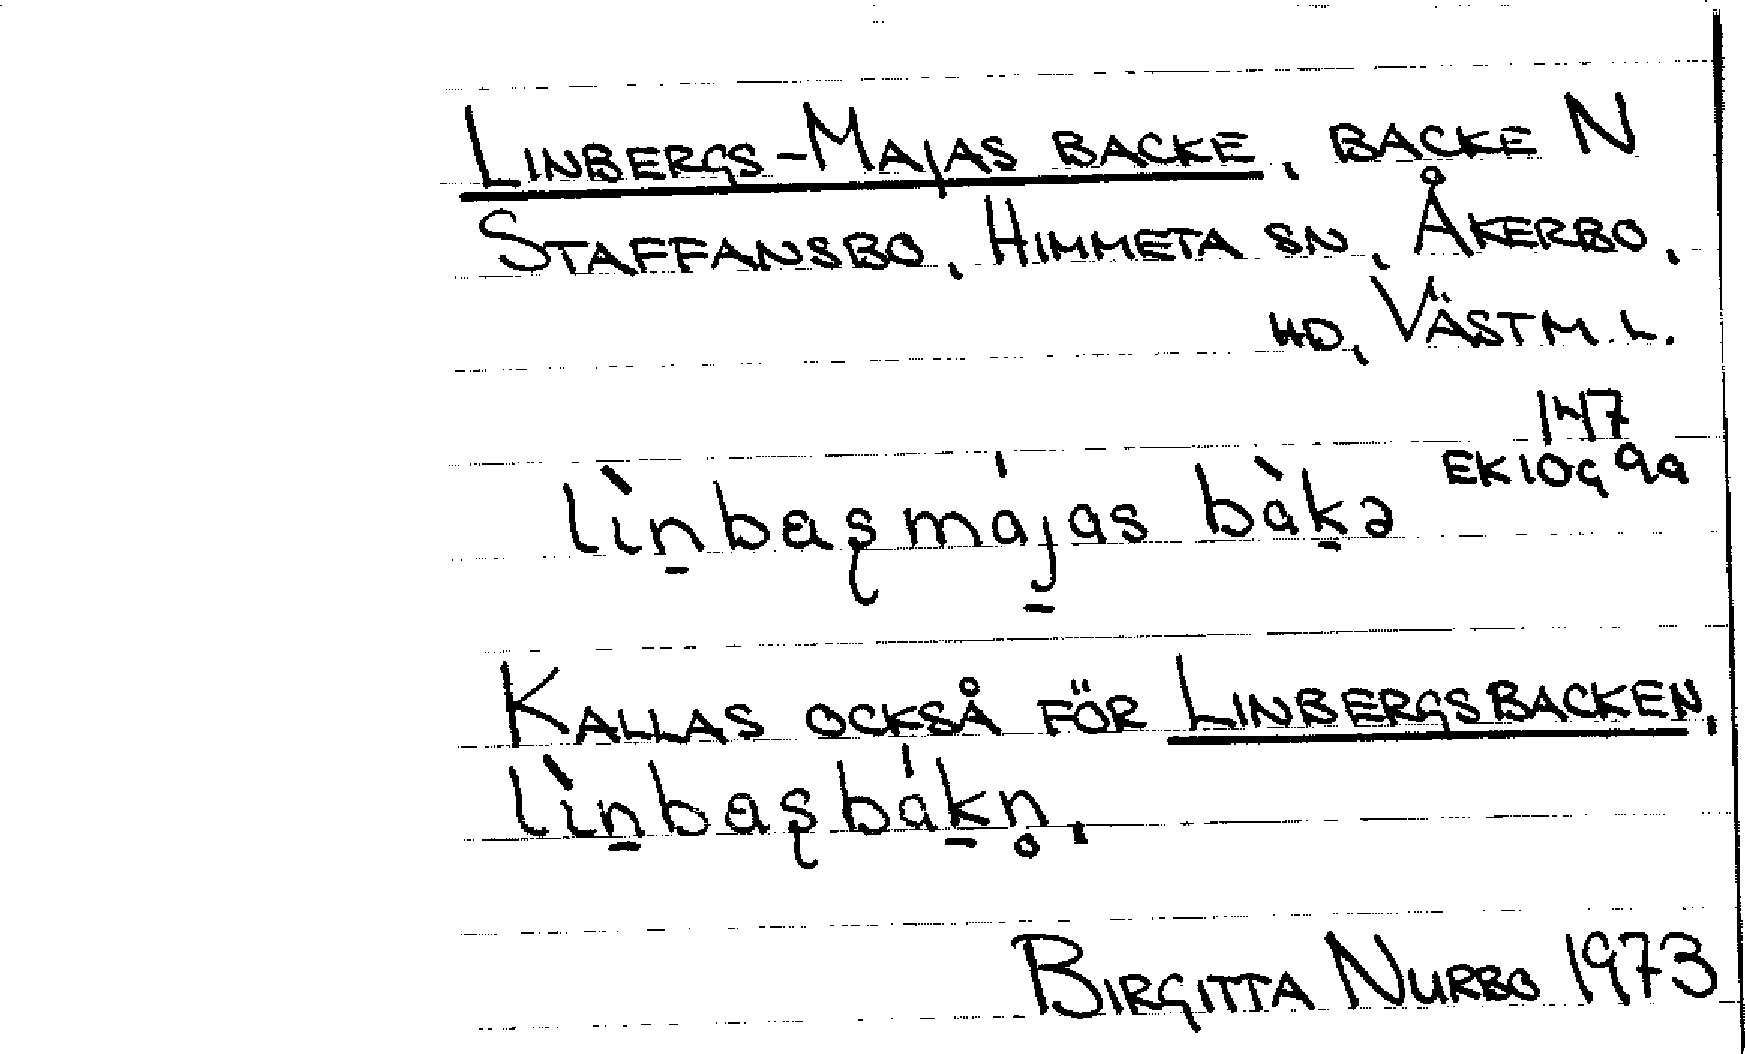 LINBERGS-MAJAS BACKE, BACKE N
STAFFANSBO, HIMMETA SN, ÅKERBO,
HD, VÄSTM. L.
147
EK 10g 9a
lìn̠baʂmáj̠as bàk̠ə
KALLAS OCKSÅ FÖR LINBERGSBACKEN,
lìn̠baʂbák̠n̥.
BIRGITTA NURBO 1973